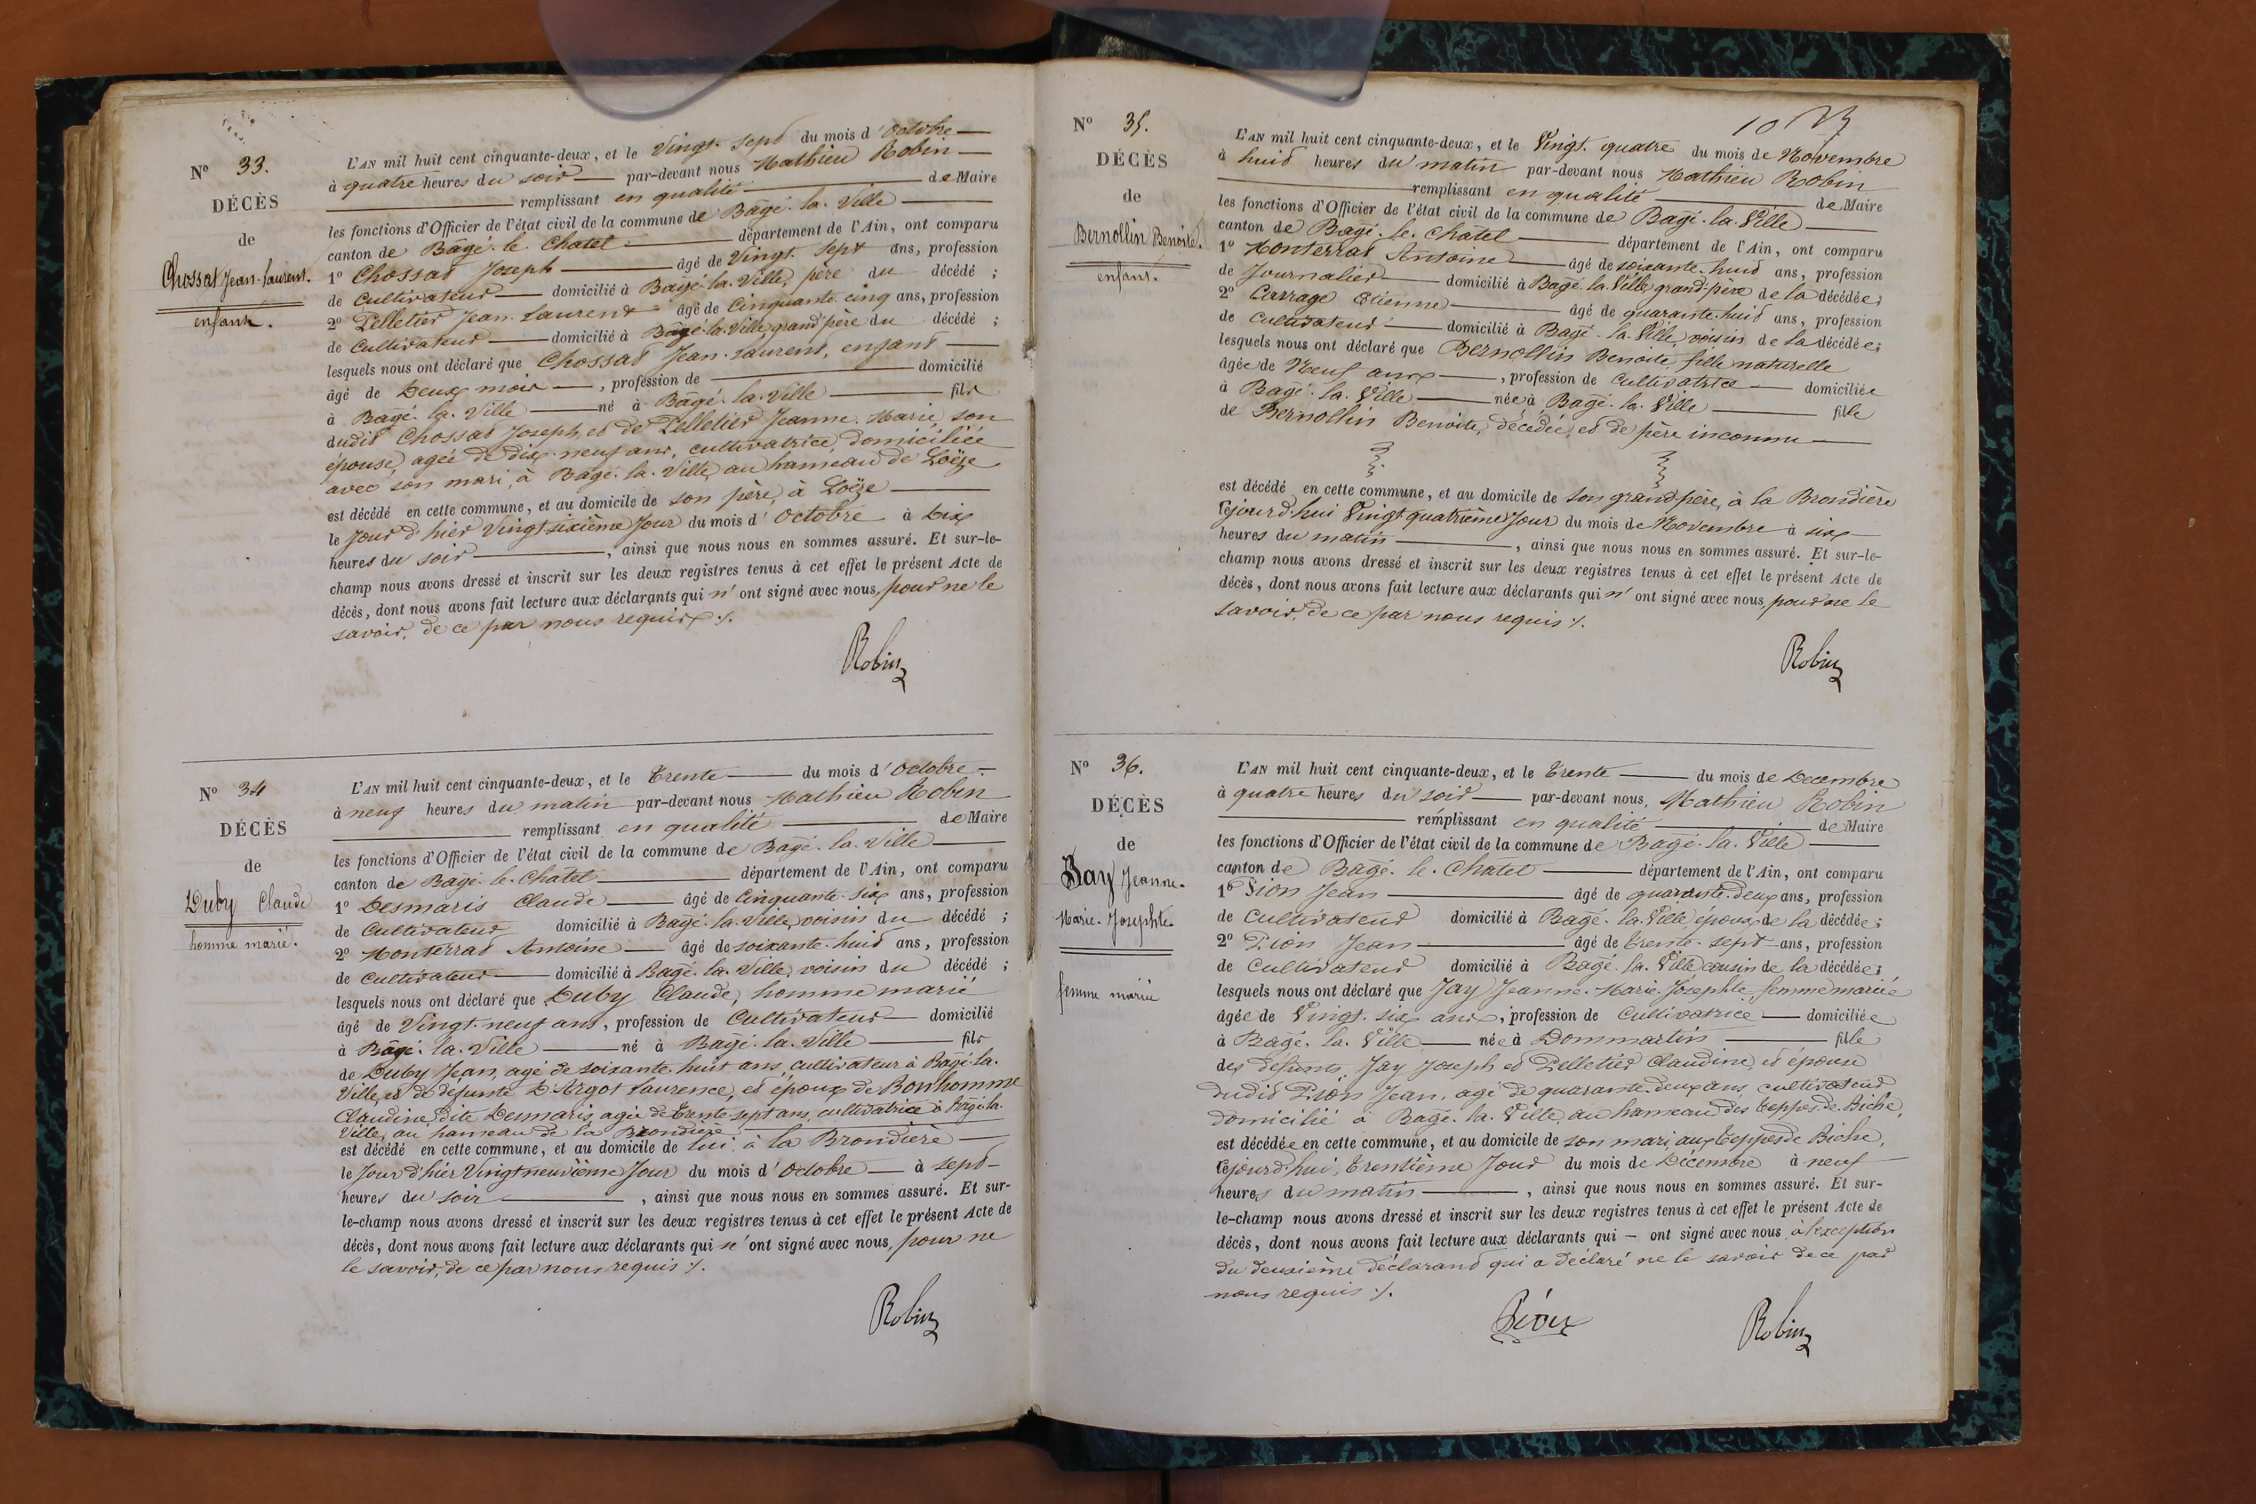 Nº 33.
DÉCÈS
de
Chossat Jean-Laurent.
enfant.
L'AN mil huit cent cinquante-deux, et le Vingt sept du mois d'Octobre
à quatre heures du soir par-devant nous Mathieu Robin
remplissant en qualité de Maire
les fonctions d'Officier de l'état civil de la commune de Bâgé-la-Ville
canton de Bâgé-le-Chatel département de l'Ain, ont comparu
1º Chossat Joseph âgé de Vingt-sept ans, profession
de Cultivateur domicilié à Bâgé-la-Ville, père du décédé ;
2º Pelletier Jean-Laurent âgé de Cinquante-cinq ans, profession
de Cultivateur domicilié à Bâgé-la-Ville, grand'père du décédé ;
lesquels nous ont déclaré que Chossat Jean-Laurent, enfant
âgé de Deux mois, profession de domicilié
à Bâgé-la-Ville né à Bâgé-la-Ville fils
dudit Chossat Joseph, et de Pelletier Jeanne-Marie, son
épouse, agée de dix-neuf ans, cultivatrice, domiciliée
avec son mari, à Bâgé-la-Ville, au hameau de Loëze
est décédé en cette commune, et au domicile de son père, à Loëze
le Jour d'hier Vingt sixième Jour du mois d'Octobre à Dix
heures du soir, ainsi que nous nous en sommes assuré. Et sur-le-
champ nous avons dressé et inscrit sur les deux registres tenus à cet effet le présent Acte de
décès, dont nous avons fait lecture aux déclarants qui n'ont signé avec nous, pour ne le
savoir, de ce par nous requis ./.
Robin
Nº 34
DÉCÈS
de
Duby Claude
homme marié.
L'AN mil huit cent cinquante-deux, et le Trente du mois d'Octobre
à neuf heures du matin par-devant nous Mathieu Robin
remplissant en qualité de Maire
les fonctions d'Officier de l'état civil de la commune de Bagé-la-Ville
canton de Bagé-le-Chatel département de l'Ain, ont comparu
1º Desmaris Claude âgé de Cinquante-six ans, profession
de Cultivateur domicilié à Bagé-la-Ville, voisin du décédé ;
2º Monterrat Antoine âgé de soixante-huit ans, profession
de Cultivateur domicilié à Bagé-la-Ville, voisin du décédé ;
lesquels nous ont déclaré que Duby Claude, homme marié
âgé de Vingt-neuf ans, profession de Cultivateur domicilié
à Bâgé-la-Ville né à Bagé-la-Ville fils
de Duby Jean, agé de soixante-huit ans, cultivateur à Bagé-la-
Ville, et de défunte D'Argot Laurence, et époux de Bonhomme
Claudine, dite Desmaris, agée de Trente-sept ans, cultivatrice à Bâgé-la-
Ville, au hameau de la Brondière
est décédé en cette commune, et au domicile de lui à la Brondière
le Jour d'hier Vingt neuvième Jour du mois d'Octobre à sept
heures du soir, ainsi que nous nous en sommes assuré. Et sur-
le-champ nous avons dressé et inscrit sur les deux registres tenus à cet effet le présent Acte de
décès, dont nous avons fait lecture aux déclarants qui n'ont signé avec nous, pour ne
le savoir, de ce par nous requis ./.
Robin
10
Nº 35.
DÉCÈS
de
Bernollin Benoite.
enfant.
L'AN mil huit cent cinquante-deux, et le Vingt-quatre du mois de Novembre
à huit heures du matin par-devant nous Mathieu Robin
remplissant en qualité de Maire
les fonctions d'Officier de l'état civil de la commune de Bagé-la-Ville
canton de Bagé-le-Châtel département de l'Ain, ont comparu
1º Monterrat Antoine âgé de soixante-huit ans, profession
de Journalier domicilié à Bagé-la-Ville grand-père de la décédée ;
2º Carrage Etienne âgé de quarante-huit ans, profession
de Cultivateur domicilié à Bagé-la-Ville, voisin de la décédée ;
lesquels nous ont déclaré que Bernollin Benoite, fille naturelle
âgée de Neuf ans, profession de Cultivatrice domiciliée
à Bagé-la-Ville née à Bagé-la-Ville fille
de Bernollin Benoite, décédée, et de père inconnu
est décédé en cette commune, et au domicile de son grand-père, à la Brondière
cejourd'hui Vingt quatrième Jour du mois de Novembre à six
heures du matin, ainsi que nous nous en sommes assuré. Et sur-le-
champ nous avons dressé et inscrit sur les deux registres tenus à cet effet le présent Acte de
décès, dont nous avons fait lecture aux déclarants qui n'ont signé avec nous, pour ne le
savoir, de ce par nous requis ./.
Robin
Nº 36.
DÉCÈS
de
Jay Jeanne-
Marie-Josephte
femme mariée
L'AN mil huit cent cinquante-deux, et le Trente du mois de Decembre
à quatre heures du soir par-devant nous, Mathieu Robin
remplissant en qualité de Maire
les fonctions d'Officier de l'état civil de la commune de Bagé-la-Ville
canton de Bagé-le-Chatel département de l'Ain, ont comparu
1º Pion Jean âgé de quarante-deux ans, profession
de Cultivateur domicilié à Bagé-la-Ville, époux de la décédée ;
2º Pion Jean âgé de trente-sept ans, profession
de Cultivateur domicilié à Bagé-la-Ville cousin de la décédée ;
lesquels nous ont déclaré que Jay Jeanne-Marie-Josephte femme mariée
âgée de Vingt-six ans, profession de Cultivatrice domiciliée
à Bagé-la-Ville née à Dommartin fille
des défunts Jay Joseph et Pelletier Claudine, et épouse
dudit Pion Jean, agé de quarante-deux ans, cultivateur
domicilié à Bagé-la-Ville, au hameau des Teppes-de-Biche,
est décédée en cette commune, et au domicile de son mari, aux Teppes de Biche,
cejourd'hui, Trentième Jour du mois de Décembre à neuf
heures du matin, ainsi que nous nous en sommes assuré. Et sur-
le-champ nous avons dressé et inscrit sur les deux registres tenus à cet effet le présent Acte de
décès, dont nous avons fait lecture aux déclarants qui — ont signé avec nous à l'exception
du deuxième déclarant qui a déclaré ne le savoir de ce par
nous requis ./.
Pion
Robin